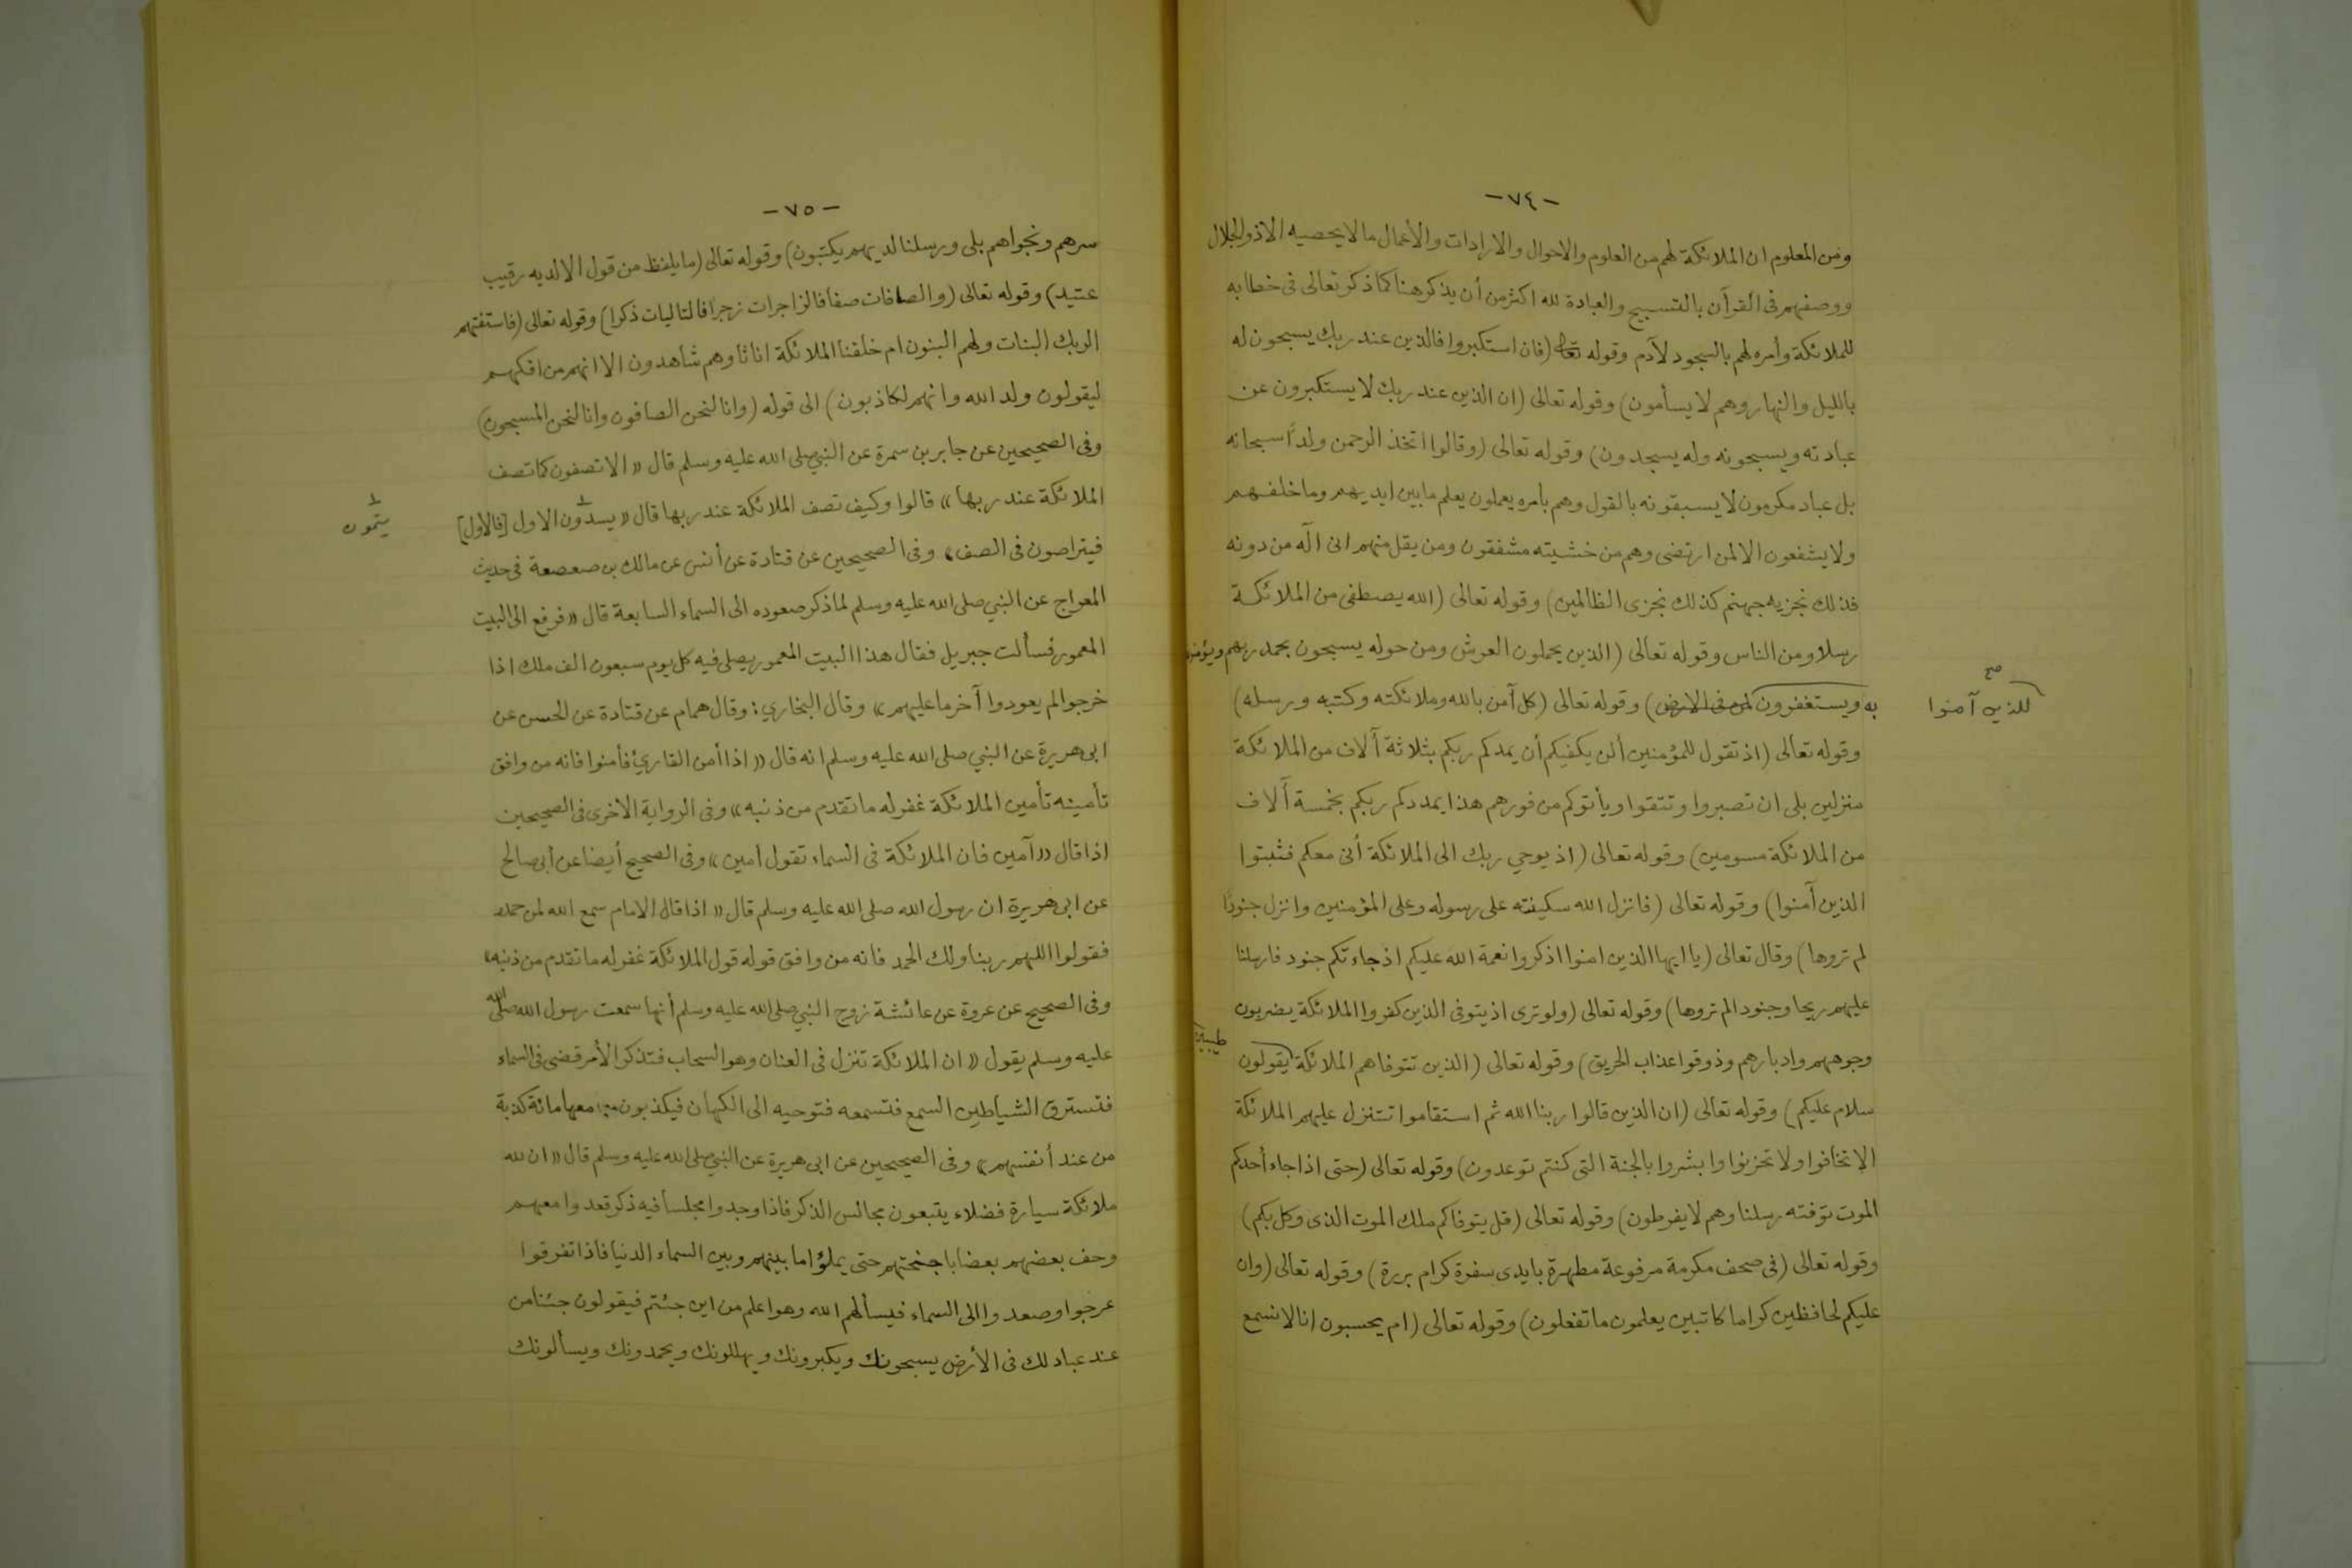 - ٧٤ -
ومن المعلوم ان الملائكة لهم من العلوم والاحوال والارادات والأعمال مالا يحصيه الا ذو الجلال
ووصفهم فى القرآن بالتسبيح والعبادة لله اكثر من أن يذكر هنا كما ذكر تعالى فى خطابه
للملائكة وأمره لهم بالسجود لآدم وقوله تعالى (فان استكبروا فالذين عند ربك يسبحون له
بالليل والنهار وهم لا يسأمون) وقوله تعالى (ان الذين عند ربك لا يستكبرون عن
عبادته ويسبحونه وله يسجدون) وقوله تعالى (وقالوا اتخذ الرحمن ولداً سبحانه
بل عباد مكرمون لا يسبقونه بالقول وهم بأمره يعملون يعلم ما بين ايديهم وما خلفهم
ولا يشفعون الا لمن ارتضى وهم من خشيته مشفقون ومن يقل منهم انى اله من دونه
فذلك نجزيه جهنم كذلك نجزى الظالمين) وقوله تعالى (الله يصطفى من الملائكة
رسلا ومن الناس وقوله تعالى (الذين يحملون العرش ومن حوله يسبحون بحمد ربهم ويؤمنون
به ويستغفرون لمن فى الارض) وقوله تعالى (كل آمن بالله وملائكته وكتبه ورسله)
صح
للذين آمنوا
وقوله تعالى (اذ تقول للمؤمنين ألن يكفيكم أن يمدكم ربكم بثلاثة آلاف من الملائكة
منزلين بلى ان تصبروا وتتقوا ويأتوكم من فورهم هذا يمددكم ربكم بخمسة آلاف
من الملائكة مسومين) وقوله تعالى (اذ يوحي ربك الى الملائكة أنى معكم فثبتوا
الذين آمنوا) وقوله تعالى (فانزل الله سكينته على رسوله وعلى المؤمنين وانزل جنودًا
لم تروها) وقال تعالى (يا ايها الذين امنوا اذكروا نعمة الله عليكم اذ جاءتكم جنود فارسلنا
عليهم ريحا وجنودا لم تروها) وقوله تعالى (ولو ترى اذ يتوفى الذين كفروا الملائكة يضربون
وجوههم وادبارهم وذوقوا عذاب الحريق) وقوله تعالى (الذين تتوفاهم الملائكة يقولون
طيبين
سلام عليكم) وقوله تعالى (ان الذين قالوا ربنا الله ثم استقاموا تتنزل عليهم الملائكة
الا تخافوا ولا تحزنوا وابشروا بالجنة التى كنتم توعدون) وقوله تعالى (حتى اذا جاء أحدكم
الموت توفته رسلنا وهم لا يفرطون) وقوله تعالى (قل يتوفاكم ملك الموت الذى وكل بكم)
وقوله تعالى (فى صحف مكرمة مرفوعة مطهرة بايدى سفرة كرام بررة) وقوله تعالى (وان
عليكم لحافظين كراما كاتبين يعلمون ما تفعلون) وقوله تعالى (ام يحسبون انا لا نسمع
- ٧٥ -
سرهم ونجواهم بلى ورسلنا لديهم يكتبون) وقوله تعالى (ما يلفظ من قول الا لديه رقيب
عتيد) وقوله تعالى (والصافات صفا فالزاجرات زجرا فالتاليات ذكرا) وقوله تعالى (فاستفتهم
الربك البنات ولهم البنون ام خلقنا الملائكة اناثا وهم شاهدون الا انهم من افكهم
ليقولون ولد الله وانهم لكاذبون) الى قوله (وانا لنحن الصافون وانا لنحن المسبحون)
وفى الصحيحين عن جابر بن سمرة عن النبي صلى الله عليه وسلم قال «الا تصفون كما تصف
الملائكة عند ربها» قالوا وكيف تصف الملائكة عند ربها قال «يسدّون الاول [فالأول]
يتمون
فيتراصون فى الصف» وفى الصحيحين عن قتادة عن أنس عن مالك بن صعصعة فى حديث
المعراج عن النبي صلى الله عليه وسلم لما ذكر صعوده الى السماء السابعة قال «فرفع الى البيت
المعمور فسألت جبريل فقال هذا البيت المعمور يصلى فيه كل يوم سبعون الف ملك اذا
خرجوا لم يعودوا آخر ما عليهم» وقال البخاري: وقال همام عن قتادة عن الحسن عن
ابى هريرة عن النبي صلى الله عليه وسلم انه قال «اذا أمن القارئ فأمنوا فانه من وافق
تأمينه تأمين الملائكة غفر له ما تقدم من ذنبه» وفى الرواية الأخرى فى الصحيحين
اذا قال «آمين فان الملائكة فى السماء تقول آمين» وفى الصحيح أيضا عن أبى صالح
عن ابى هريرة ان رسول الله صلى الله عليه وسلم قال «اذا قال الامام سمع الله لمن حمده
فقولوا اللهم ربنا ولك الحمد فانه من وافق قوله قول الملائكة غفر له ما تقدم من ذنبه»
وفى الصحيح عن عروة عن عائشة زوج النبي صلى الله عليه وسلم أنها سمعت رسول الله صلى الله
عليه وسلم يقول «ان الملائكة تنزل فى العنان وهو السحاب فتذكر الأمر قضى فى السماء
فتسترق الشياطين السمع فتسمعه فتوحيه الى الكهان فيكذبون معها مائة كذبة
من عند أنفسهم» وفى الصحيحين عن ابى هريرة عن النبي صلى الله عليه وسلم قال «ان لله
ملائكة سيارة فضلاء يتبعون مجالس الذكر فاذا وجدوا مجلسا فيه ذكر قعدوا معهم
وحف بعضهم بعضا باجنحتهم حتى يملؤا ما بينهم وبين السماء الدنيا فاذا تفرقوا
عرجوا وصعدوا الى السماء فيسألهم الله وهو اعلم من اين جئتم فيقولون جئنا من
عند عباد لك فى الأرض يسبحونك ويكبرونك ويهللونك ويحمدونك ويسألونك